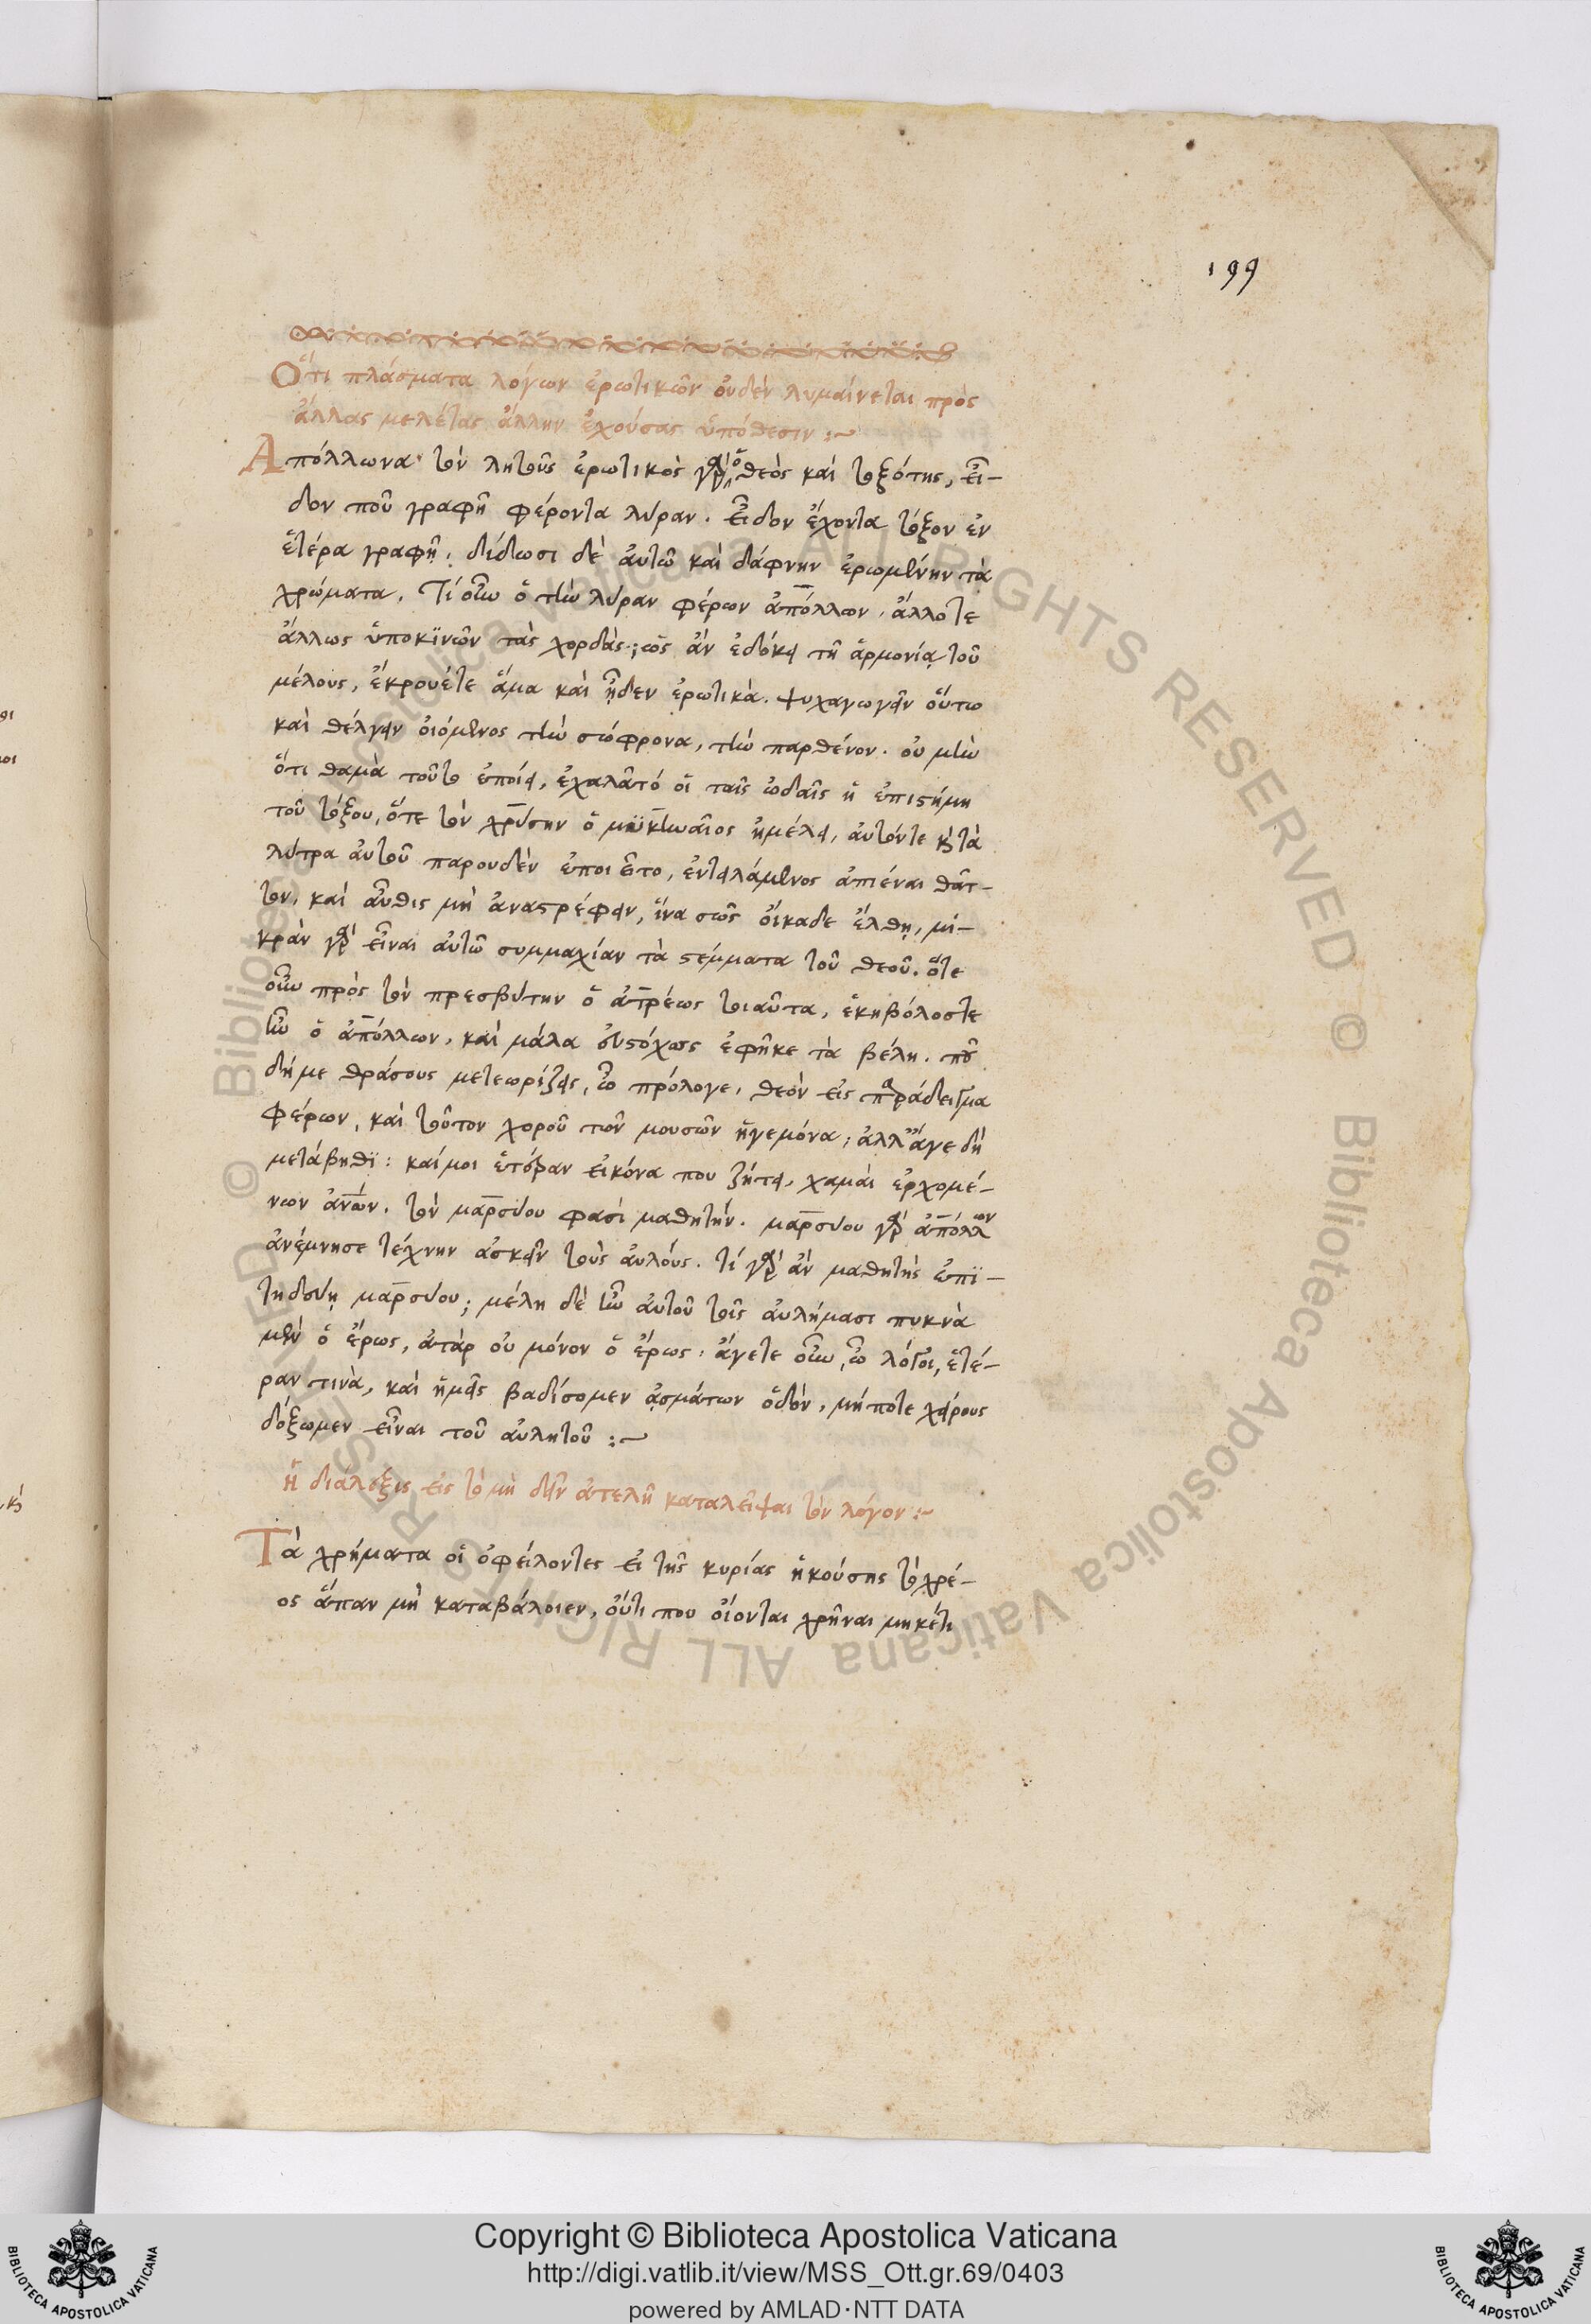 199
Ὅτι πλάσματα λόγων ἐρωτικῶν οὐδὲν λυμαίνεται πρὸς
ἄλλας μελέτας ἄλλην ἐχούσας ὑπόθεσιν :~
Ἀπόλλωνα τὸν λητοῦς ἐρωτικὸς γὰρ ὁ θεὸς καὶ τοξότης, εἶ-
δον ποῦ γραφῆ φέροντα λύραν. εἶδον ἔχοντα τόξον ἐν
ἑτέρα γραφῆ. δίδωσι δὲ αὐτῶ καὶ δάφνην ἐρωμένην τὰ
χρώματα. Τί οὖν ὁ τὴν λύραν φέρων ἀπόλλων. ἄλλοτε
ἄλλως ὑποκϊνῶν τὰς χορδὰς; ὡς ἂν ἐδόκει τῆ ἁρμονίᾳ τοῦ
μέλους, ἔκρουέτε ἅμα καὶ ᾖδεν ἐρωτικὰ. ψυχαγωγεῖν οὕτω
καὶ θέλγειν οἰόμενος τὴν σώφρονα, τὴν παρθένον. οὐ μὴν
ὅτι θαμὰ τοῦτο ἐποίει, ἐχαλᾶτό οἱ ταῖς ὠδαῖς ἡ ἐπιστήμη
τοῦ τόξου, ὅτε τὸν χρύσην ὁ μϋκηναῖος ἠμέλει, αὐτόντε καὶ τὰ
λύτρα αὐτοῦ παρουδὲν ἐποιεῖτο, ἐντειλάμενος ἀπιέναι θᾶτ-
τον, καὶ αὖθις μὴ ἀναστρέφειν, ἵνα σῶς οἴκαδε ἔλθῃ, μι-
κρὰν γὰρ εἶναι αὐτῶ συμμαχίαν τὰ στέμματα τοῦ θεοῦ. ὅτε
οὖν πρὸς τὸν πρεσβύτην ὁ ἀτρέως τοιαῦτα, ἑκηβόλοστε
ἦν ὁ ἀπόλλων, καὶ μάλα εὐστόχως ἐφῆκε τὰ βέλη. ποῦ
δή με θράσους μετεωρίζεις, ὦ πρόλογε, θεὸν εἰς παράδειγμα
φέρων, καὶ τοῦτον χοροῦ τῶν μουσῶν ἡγεμόνα; ἀλλ' ἄγε δὴ
μετάβηθϊ: καίμοι ἑτέραν εἰκόνα που ζήτει, χαμαὶ ἐρχομέ-
νων ἀνων. τὸν μαρσύου φασὶ μαθητήν. μαρσύου γὰρ ἀπόλλων
ἀνέμνησε τέχνην ἀσκεῖν τοὺς αὐλούς. τί γὰρ ἂν μαθητὴς ἐπϊ-
τηδεύῃ μαρσύου; μέλη δὲ ἦν αὐτοῦ τοῖς αὐλήμασι πυκνὰ
μὲν ὁ ἔρως, ἀτὰρ οὐ μόνον ὁ ἔρως: ἄγετε οὖν, ὦ λόγοι, ἑτέ-
ραν τινὰ, καὶ ἡμεῖς βαδίσομεν ᾀσμάτων ὁδὸν, μήποτε χείρους
δόξωμεν εἶναι τοῦ αὐλητοῦ :~
ἡ διάλεξις εἰς τὸ μὴ δεῖν ἀτελῆ καταλεῖψαι τὸν λόγον :~
Τὰ χρήματα οἱ ὀφείλοντες εἰ τῆς κυρίας ἡκούσης τὸ χρέ-
ος ἅπαν μὴ καταβάλοιεν, οὔτι που οἴονται χρῆναι μηκέτι
Copyright © Biblioteca Apostolica Vaticana
http://digi.vatlib.it/view/MSS_Ott.gr.69/0403
powered by AMLAD·NTT DATA
BIBLIOTECA APOSTOLICA VATICANA
BIBLIOTECA APOSTOLICA VATICANA
© Biblioteca Apostolica Vaticana ALL RIGHTS RESERVED
© Biblioteca Apostolica Vaticana ALL RIGHTS RESERVED